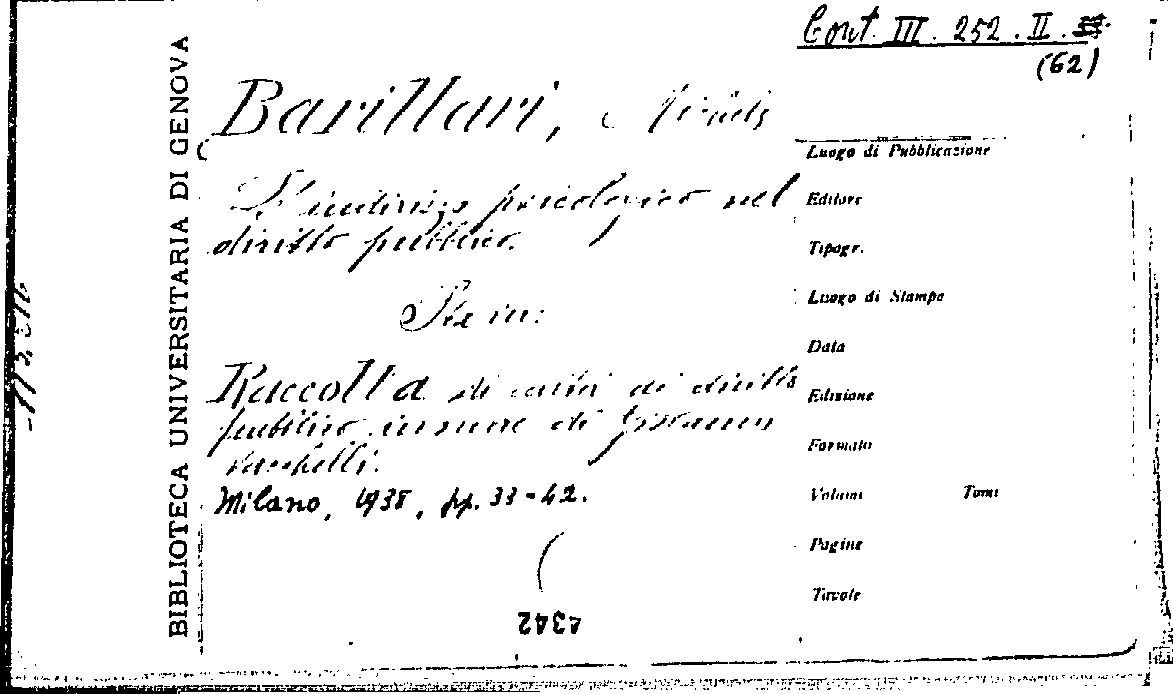 Cont. III. 252. II.
(62)
BIBLIOTECA UNIVERSITARIA DI GENOVA
Barillari, Michele
L'indirizzo psicologico nel
diritto pubblico.
Sta in:
Raccolta di scritti di diritto
pubblico in onore di Giovanni
Vacchelli.
Milano, 1938, pp. 33-42.
Luogo di Pubblicazione
Editore
Tipogr.
Luogo di Stampa
Data
Edizione
Formato
Volumi Tomi
Pagine
Tavole
4342